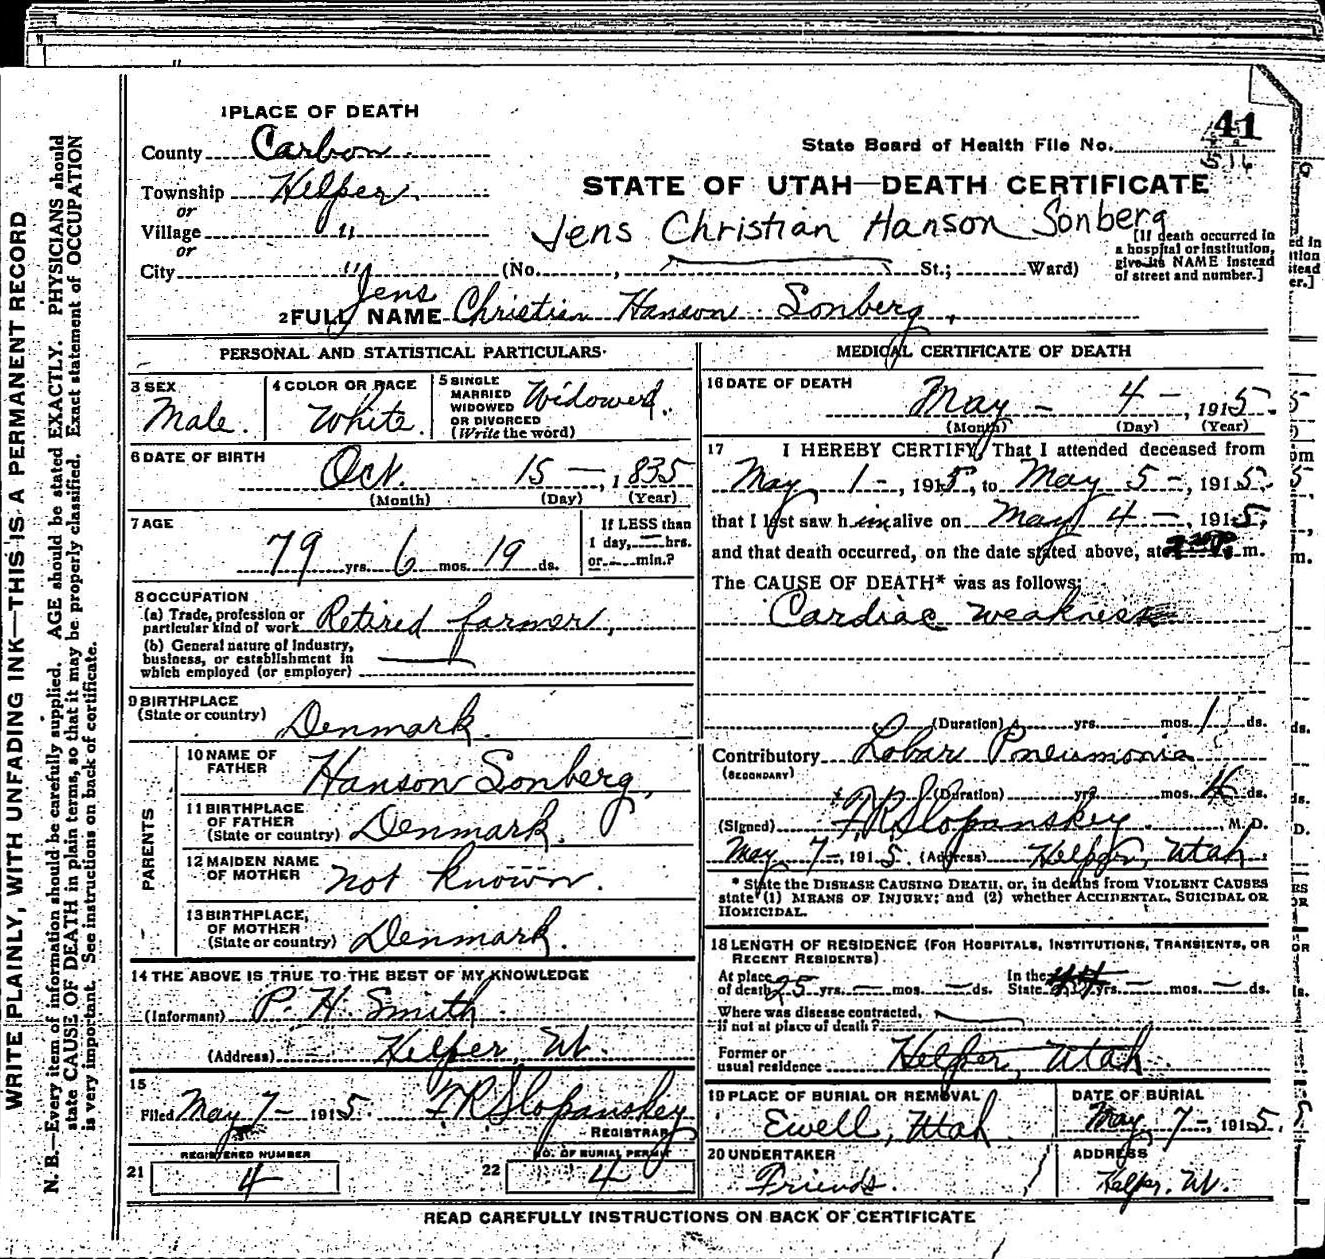 41
516
State Board of Health File No.
1 PLACE OF DEATH
County Carbon
Township Helper
or
Village "
or
City "
STATE OF UTAH—DEATH CERTIFICATE
Jens Christian Hanson Sonberg
(No. , St.; Ward)
[If death occurred in
a hospital or institution,
give its NAME instead
of street and number.]
Jens
2 FULL NAME Christian Hanson Sonberg,
PERSONAL AND STATISTICAL PARTICULARS
3 SEX
Male.
4 COLOR OR RACE
White.
5 SINGLE
MARRIED
WIDOWED
OR DIVORCED
(Write the word)
Widowed.
6 DATE OF BIRTH
Oct. 15 —, 1835
(Month) (Day) (Year)
7 AGE
79 yrs. 6 mos. 19 ds.
If LESS than
1 day, — hrs.
or — min.?
8 OCCUPATION
(a) Trade, profession or
particular kind of work Retired farmer,
(b) General nature of Industry,
business, or establishment in
which employed (or employer)
9 BIRTHPLACE
(State or country) Denmark.
PARENTS
10 NAME OF
FATHER Hanson Sonberg,
11 BIRTHPLACE
OF FATHER
(State or country) Denmark.
12 MAIDEN NAME
OF MOTHER not known.
13 BIRTHPLACE,
OF MOTHER
(State or country) Denmark.
14 THE ABOVE IS TRUE TO THE BEST OF MY KNOWLEDGE
(Informant) P. H. Smith.
(Address) Helper, Ut.
15
Filed May 7 — 1915. F R Slopanskey
REGISTRAR
REGISTERED NUMBER
21 4
NO. OF BURIAL PERMIT
22 4
MEDICAL CERTIFICATE OF DEATH
16 DATE OF DEATH
May — 4 —, 1915.
(Month) (Day) (Year)
17 I HEREBY CERTIFY, That I attended deceased from
May 1 —, 1915, to May 5 —, 1915.
that I last saw him alive on May 4 —, 1915,
and that death occurred, on the date stated above, at m.
The CAUSE OF DEATH* was as follows:
Cardiac weakness
(Duration) yrs. mos. 1 ds.
Contributory Lobar Pneumonia
(SECONDARY)
(Duration) yrs. mos. 4 ds.
(Signed) F R Slopanskey, M. D.
May 7 —, 1915. (Address) Helper, Utah.
* State the DISEASE CAUSING DEATH, or, in deaths from VIOLENT CAUSES
state (1) MEANS OF INJURY; and (2) whether ACCIDENTAL, SUICIDAL OR
HOMICIDAL.
18 LENGTH OF RESIDENCE (FOR HOSPITALS, INSTITUTIONS, TRANSIENTS, OR
RECENT RESIDENTS)
At place
of death 25 yrs. — mos. — ds.
In the
State yrs. — mos. — ds.
Where was disease contracted,
if not at place of death?
Former or
usual residence Helper, Utah.
19 PLACE OF BURIAL OR REMOVAL
Ewell, Utah
DATE OF BURIAL
May 7 —, 1915.
20 UNDERTAKER
Friends.
ADDRESS
Helper, Ut.
READ CAREFULLY INSTRUCTIONS ON BACK OF CERTIFICATE
WRITE PLAINLY, WITH UNFADING INK—THIS IS A PERMANENT RECORD
N. B.—Every item of information should be carefully supplied. AGE should be stated EXACTLY. PHYSICIANS should
state CAUSE OF DEATH in plain terms, so that it may be properly classified. Exact statement of OCCUPATION
is very important. See instructions on back of certificate.